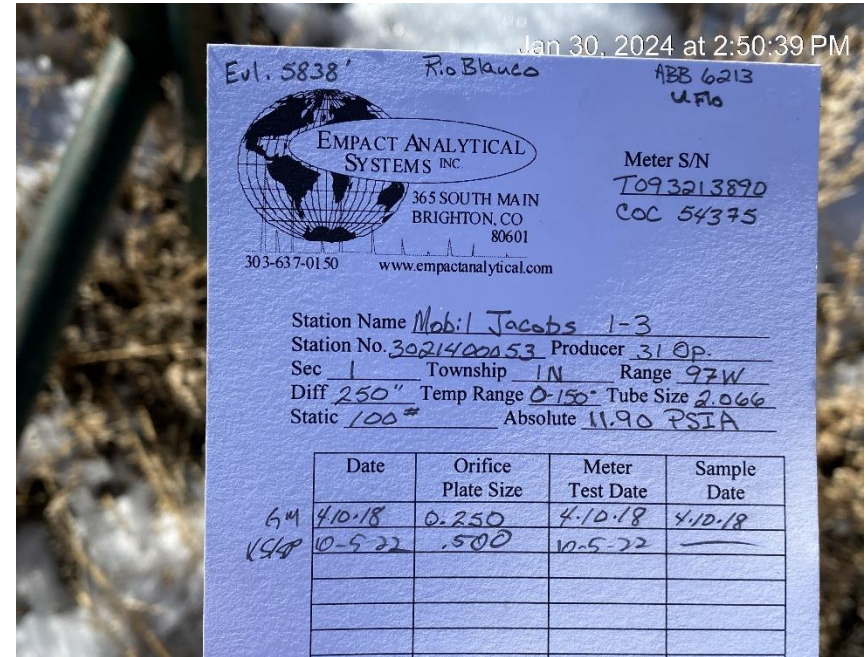 Jan 30, 2024 at 2:50:39 PM
Evl. 5838' Rio Blanco ABB 6213
uFlo
EMPACT ANALYTICAL
SYSTEMS INC
365 SOUTH MAIN
BRIGHTON, CO
80601
303-637-0150 www.empactanalytical.com
Meter S/N
T093213890
COC 54375
Station Name Mobil Jacobs 1-3
Station No. 3021400053 Producer 31 Op.
Sec 1 Township 1N Range 97W
Diff 250" Temp Range 0-150° Tube Size 2.066
Static 100# Absolute 11.90 PSIA
Date Orifice Plate Size Meter Test Date Sample Date
GM 4.10.18 0.250 4.10.18 4.10.18
10-5-22 .500 10-5-22